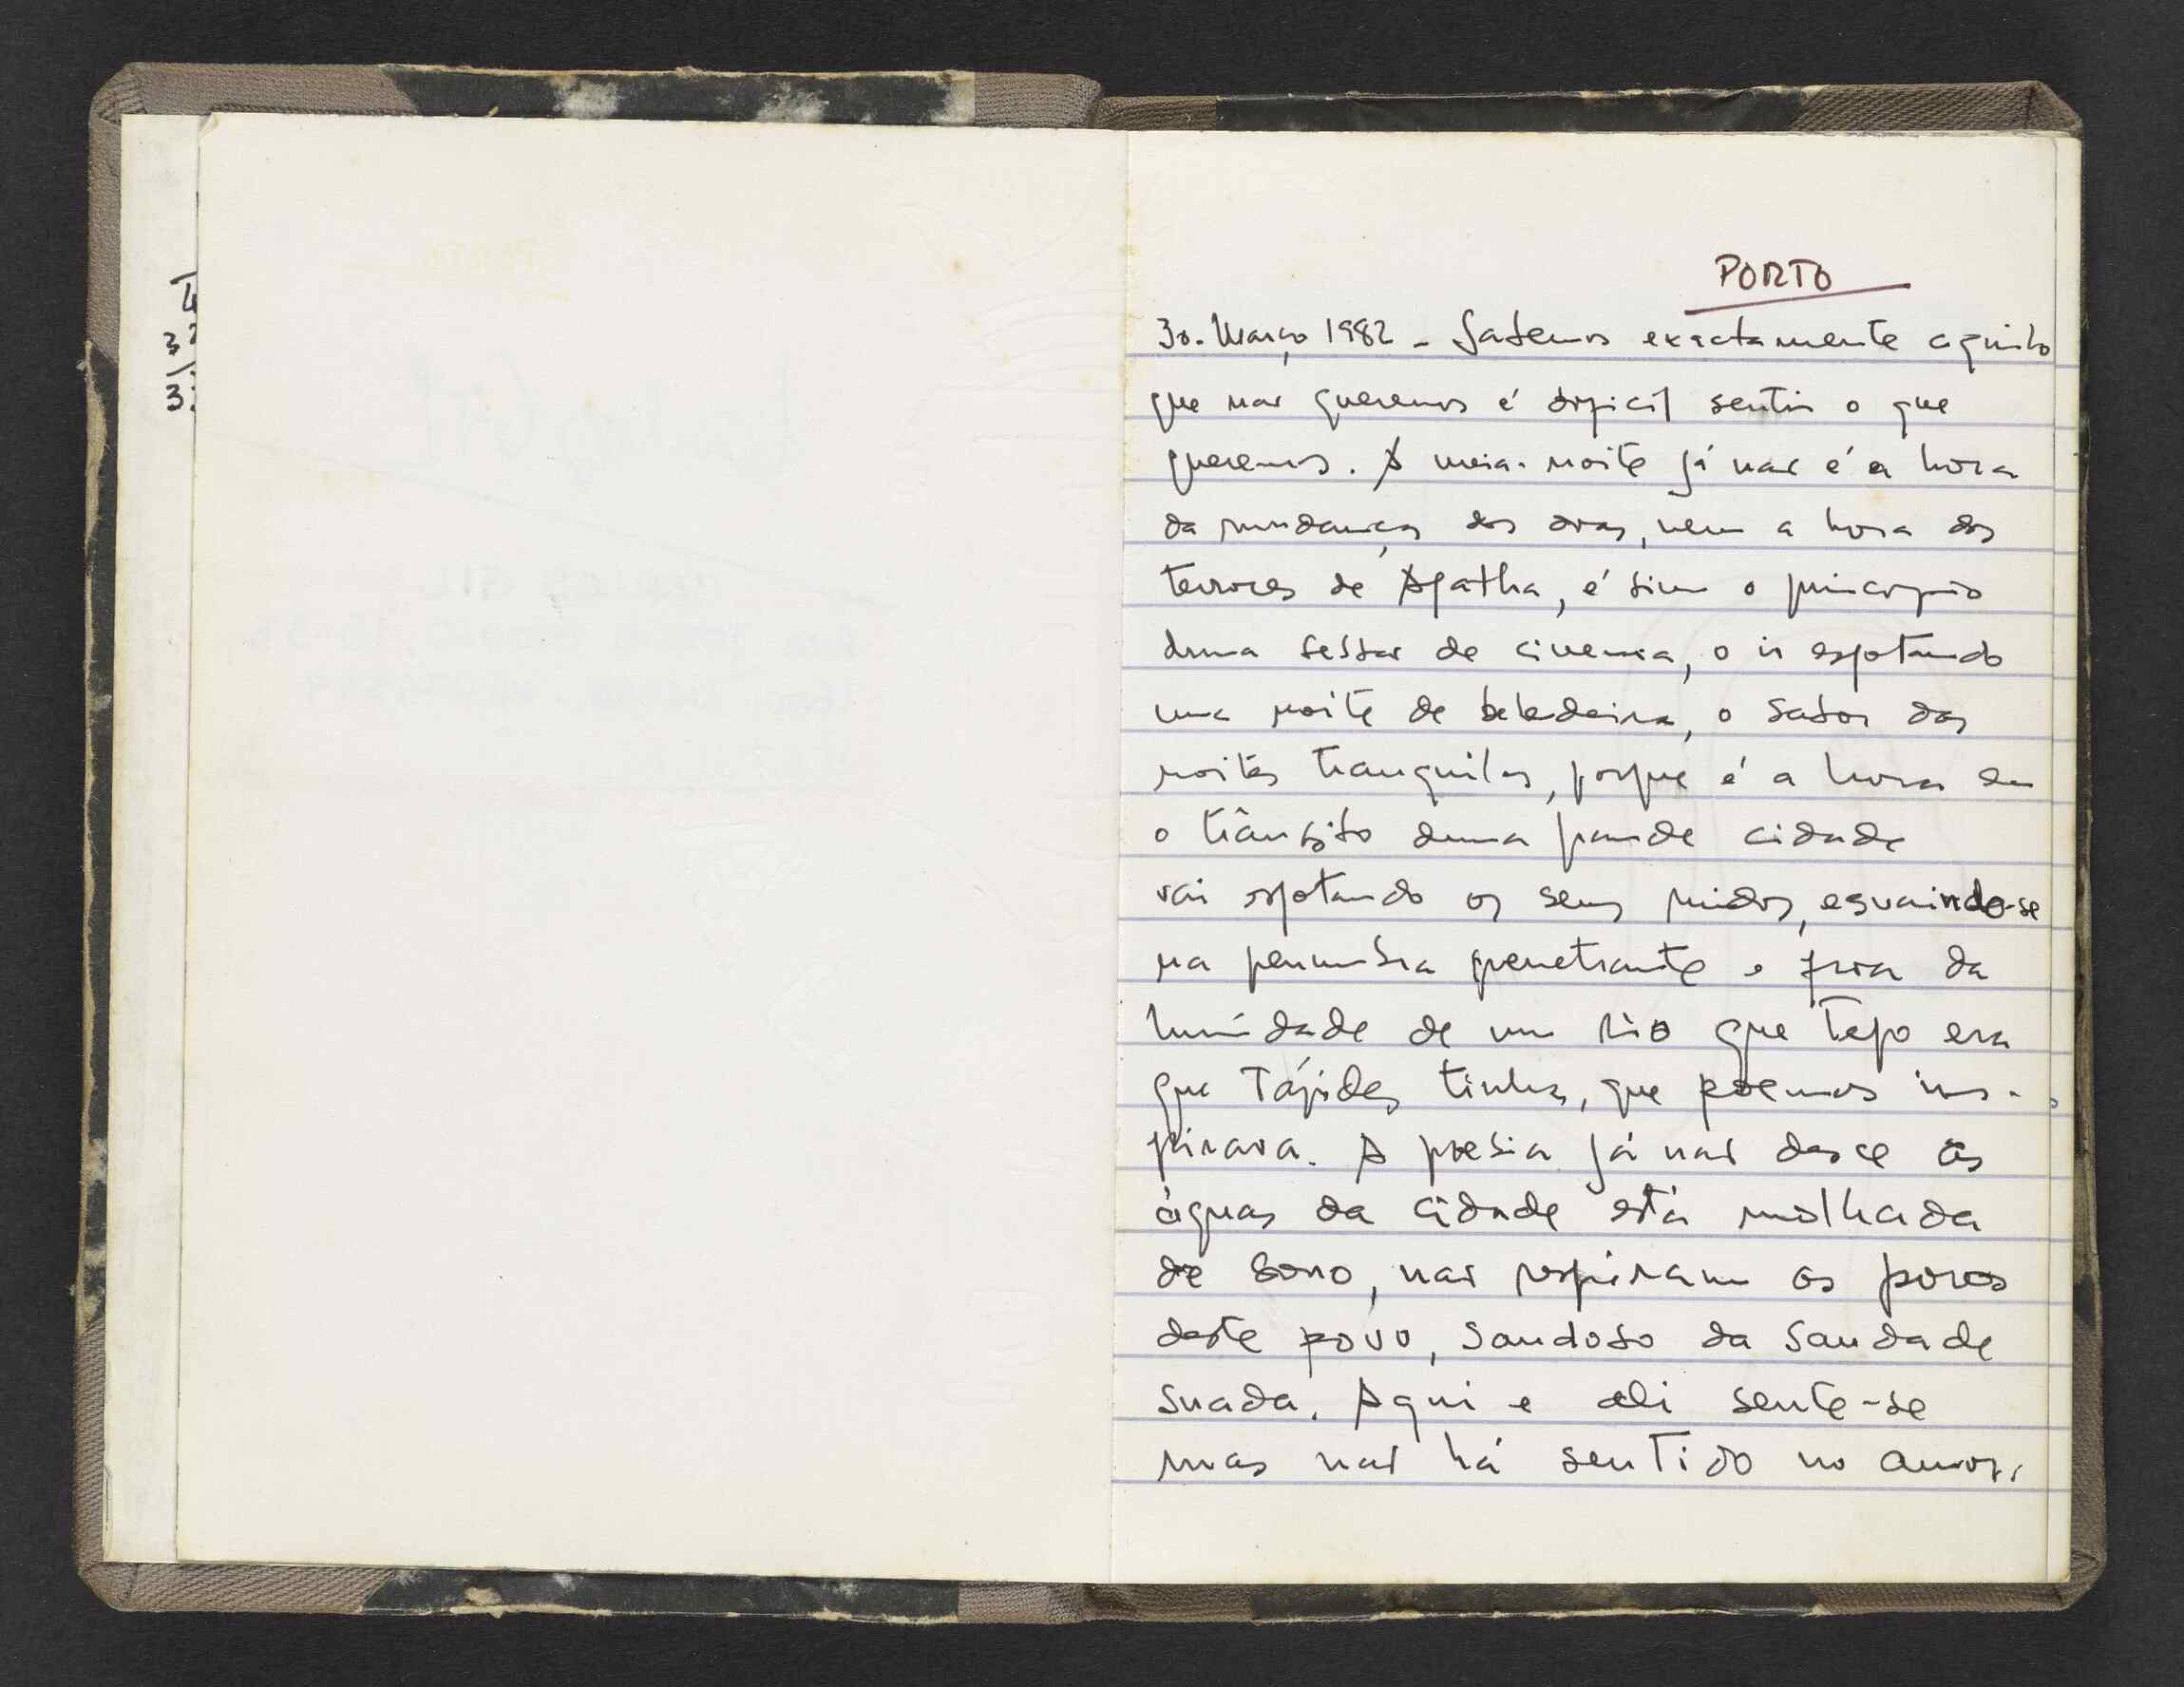 PORTO
30. Março 1982 - Sabemos exactamente aquilo
que não queremos é dificil sentir o que
queremos. A meia-noite já não é a hora
da mudança dos dias, nem a hora dos
terrores de Agatha, é sim o principio
duma sessão de cinema, o ir esgotando
uma noite de bebedeira, o sabor das
noites tranquilas, porque é a hora em
o trânsito duma grande cidade
vai esgotando os seus ruidos, esvaindo-se
na penumbra penetrante e fria da
humidade de um rio que Tejo era
que Tájides tinha, que poemas ins-
pirava. A poesia já não desce as
águas da cidade está molhada
de sono, não respiram os poros
deste povo, saudoso da saudade
suada. Aqui e ali sente-se
mas não há sentido no amor,